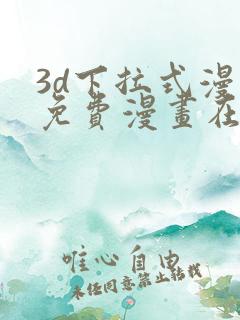 3d下拉式漫
免費漫畫在
唯心自由
未任同意禁止转载